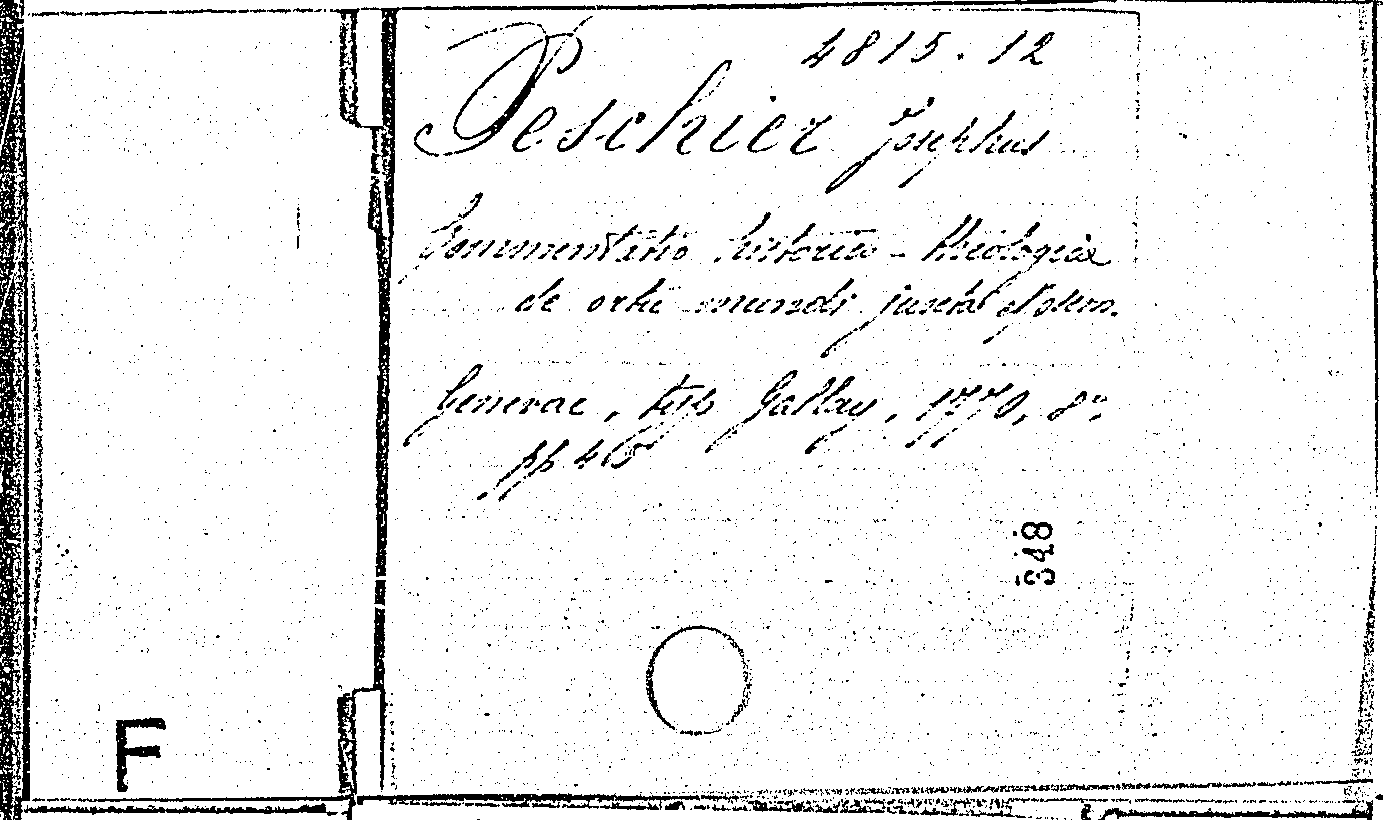 4815.12
Peschier Josephus
Commentatio historico-theologica
de ortu mundi juxta
Genevae, typ Gallay, 1770, 8°.
pp 45
348
F